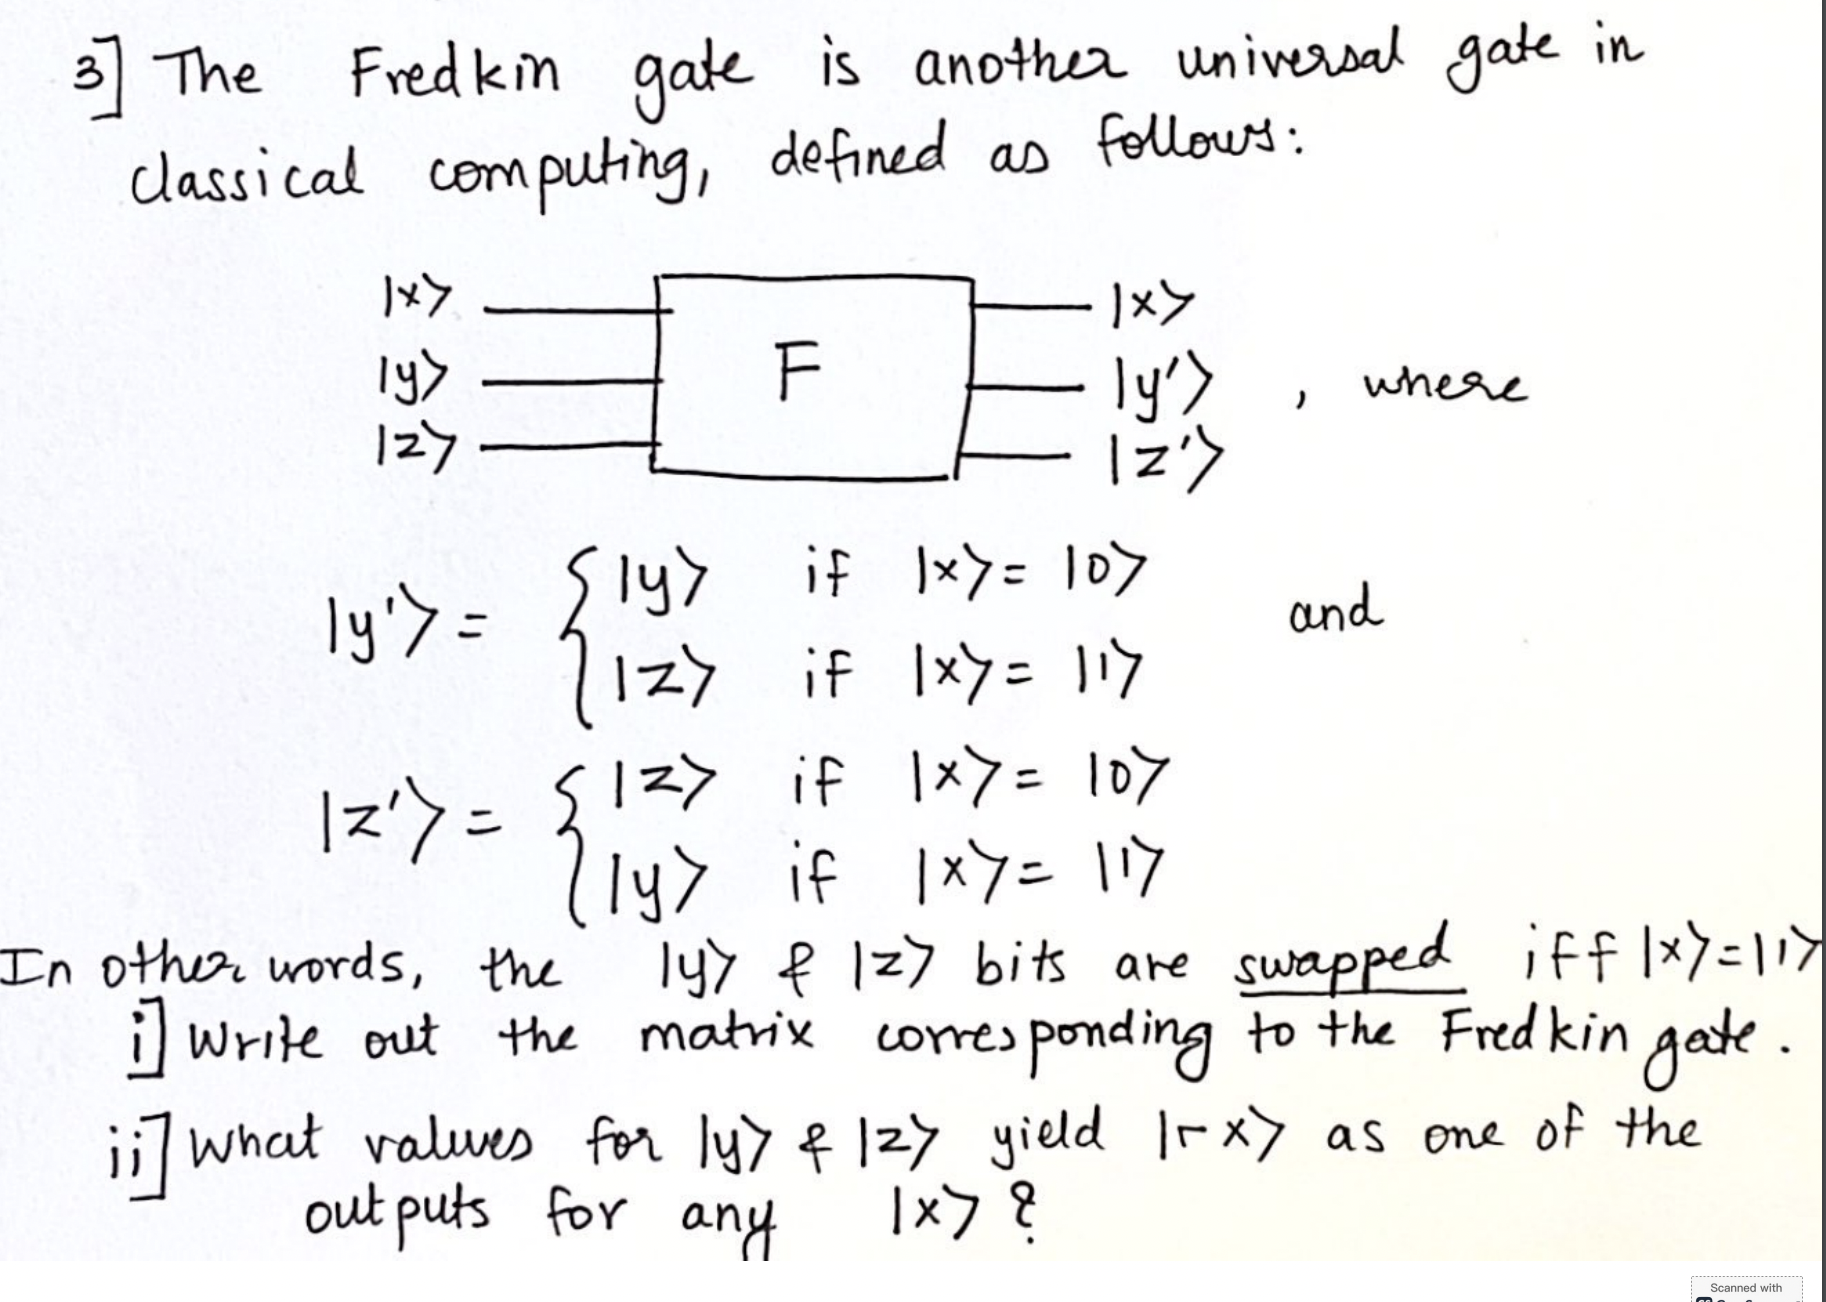 3] The Fredkin gate is another universal gate in
classical computing, defined as follows:
|x⟩ |x⟩
|y⟩ F |y'⟩ , where
|z⟩ |z'⟩
|y'⟩ = { |y⟩ if |x⟩ = |0⟩ and
|z⟩ if |x⟩ = |1⟩
|z'⟩ = { |z⟩ if |x⟩ = |0⟩
|y⟩ if |x⟩ = |1⟩
In other words, the |y⟩ & |z⟩ bits are swapped iff |x⟩=|1⟩
i] Write out the matrix corresponding to the Fredkin gate.
ii] What values for |y⟩ & |z⟩ yield |¬x⟩ as one of the
outputs for any |x⟩ ?
Scanned with